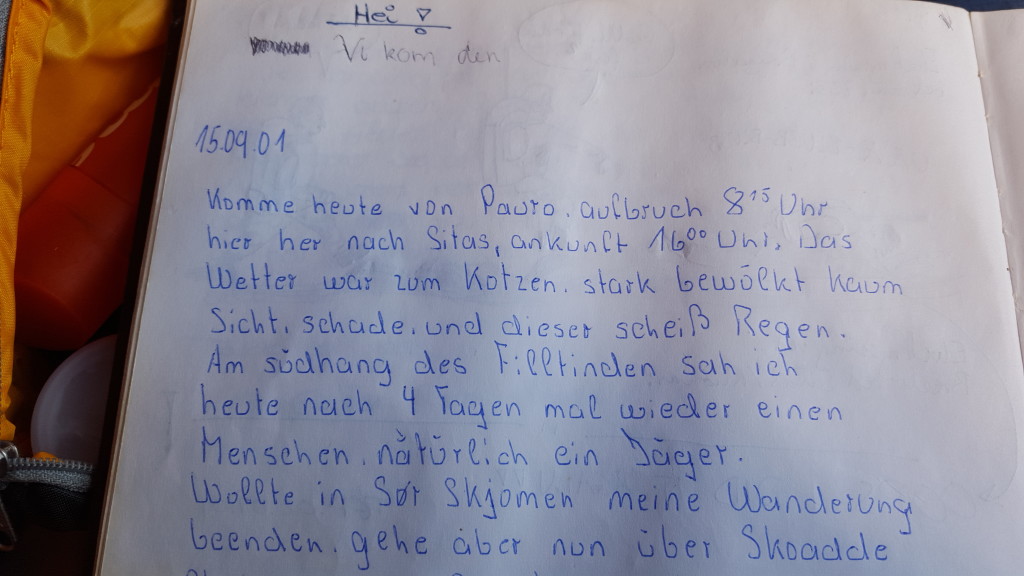 Hei !
Vi kom den
15.09.01
Komme heute von Pauro. aufbruch 8¹⁵ Uhr
hier her nach Sitas, ankunft 16⁰⁰ Uhr. Das
Wetter war zum Kotzen. stark bewölkt kaum
Sicht. schade. und dieser scheiß Regen.
Am südhang des Filltinden sah ich
heute nach 4 Tagen mal wieder einen
Menschen. natürlich ein Jäger.
Wollte in Sør Skjomen meine Wanderung
beenden. gehe aber nun über Skoadde